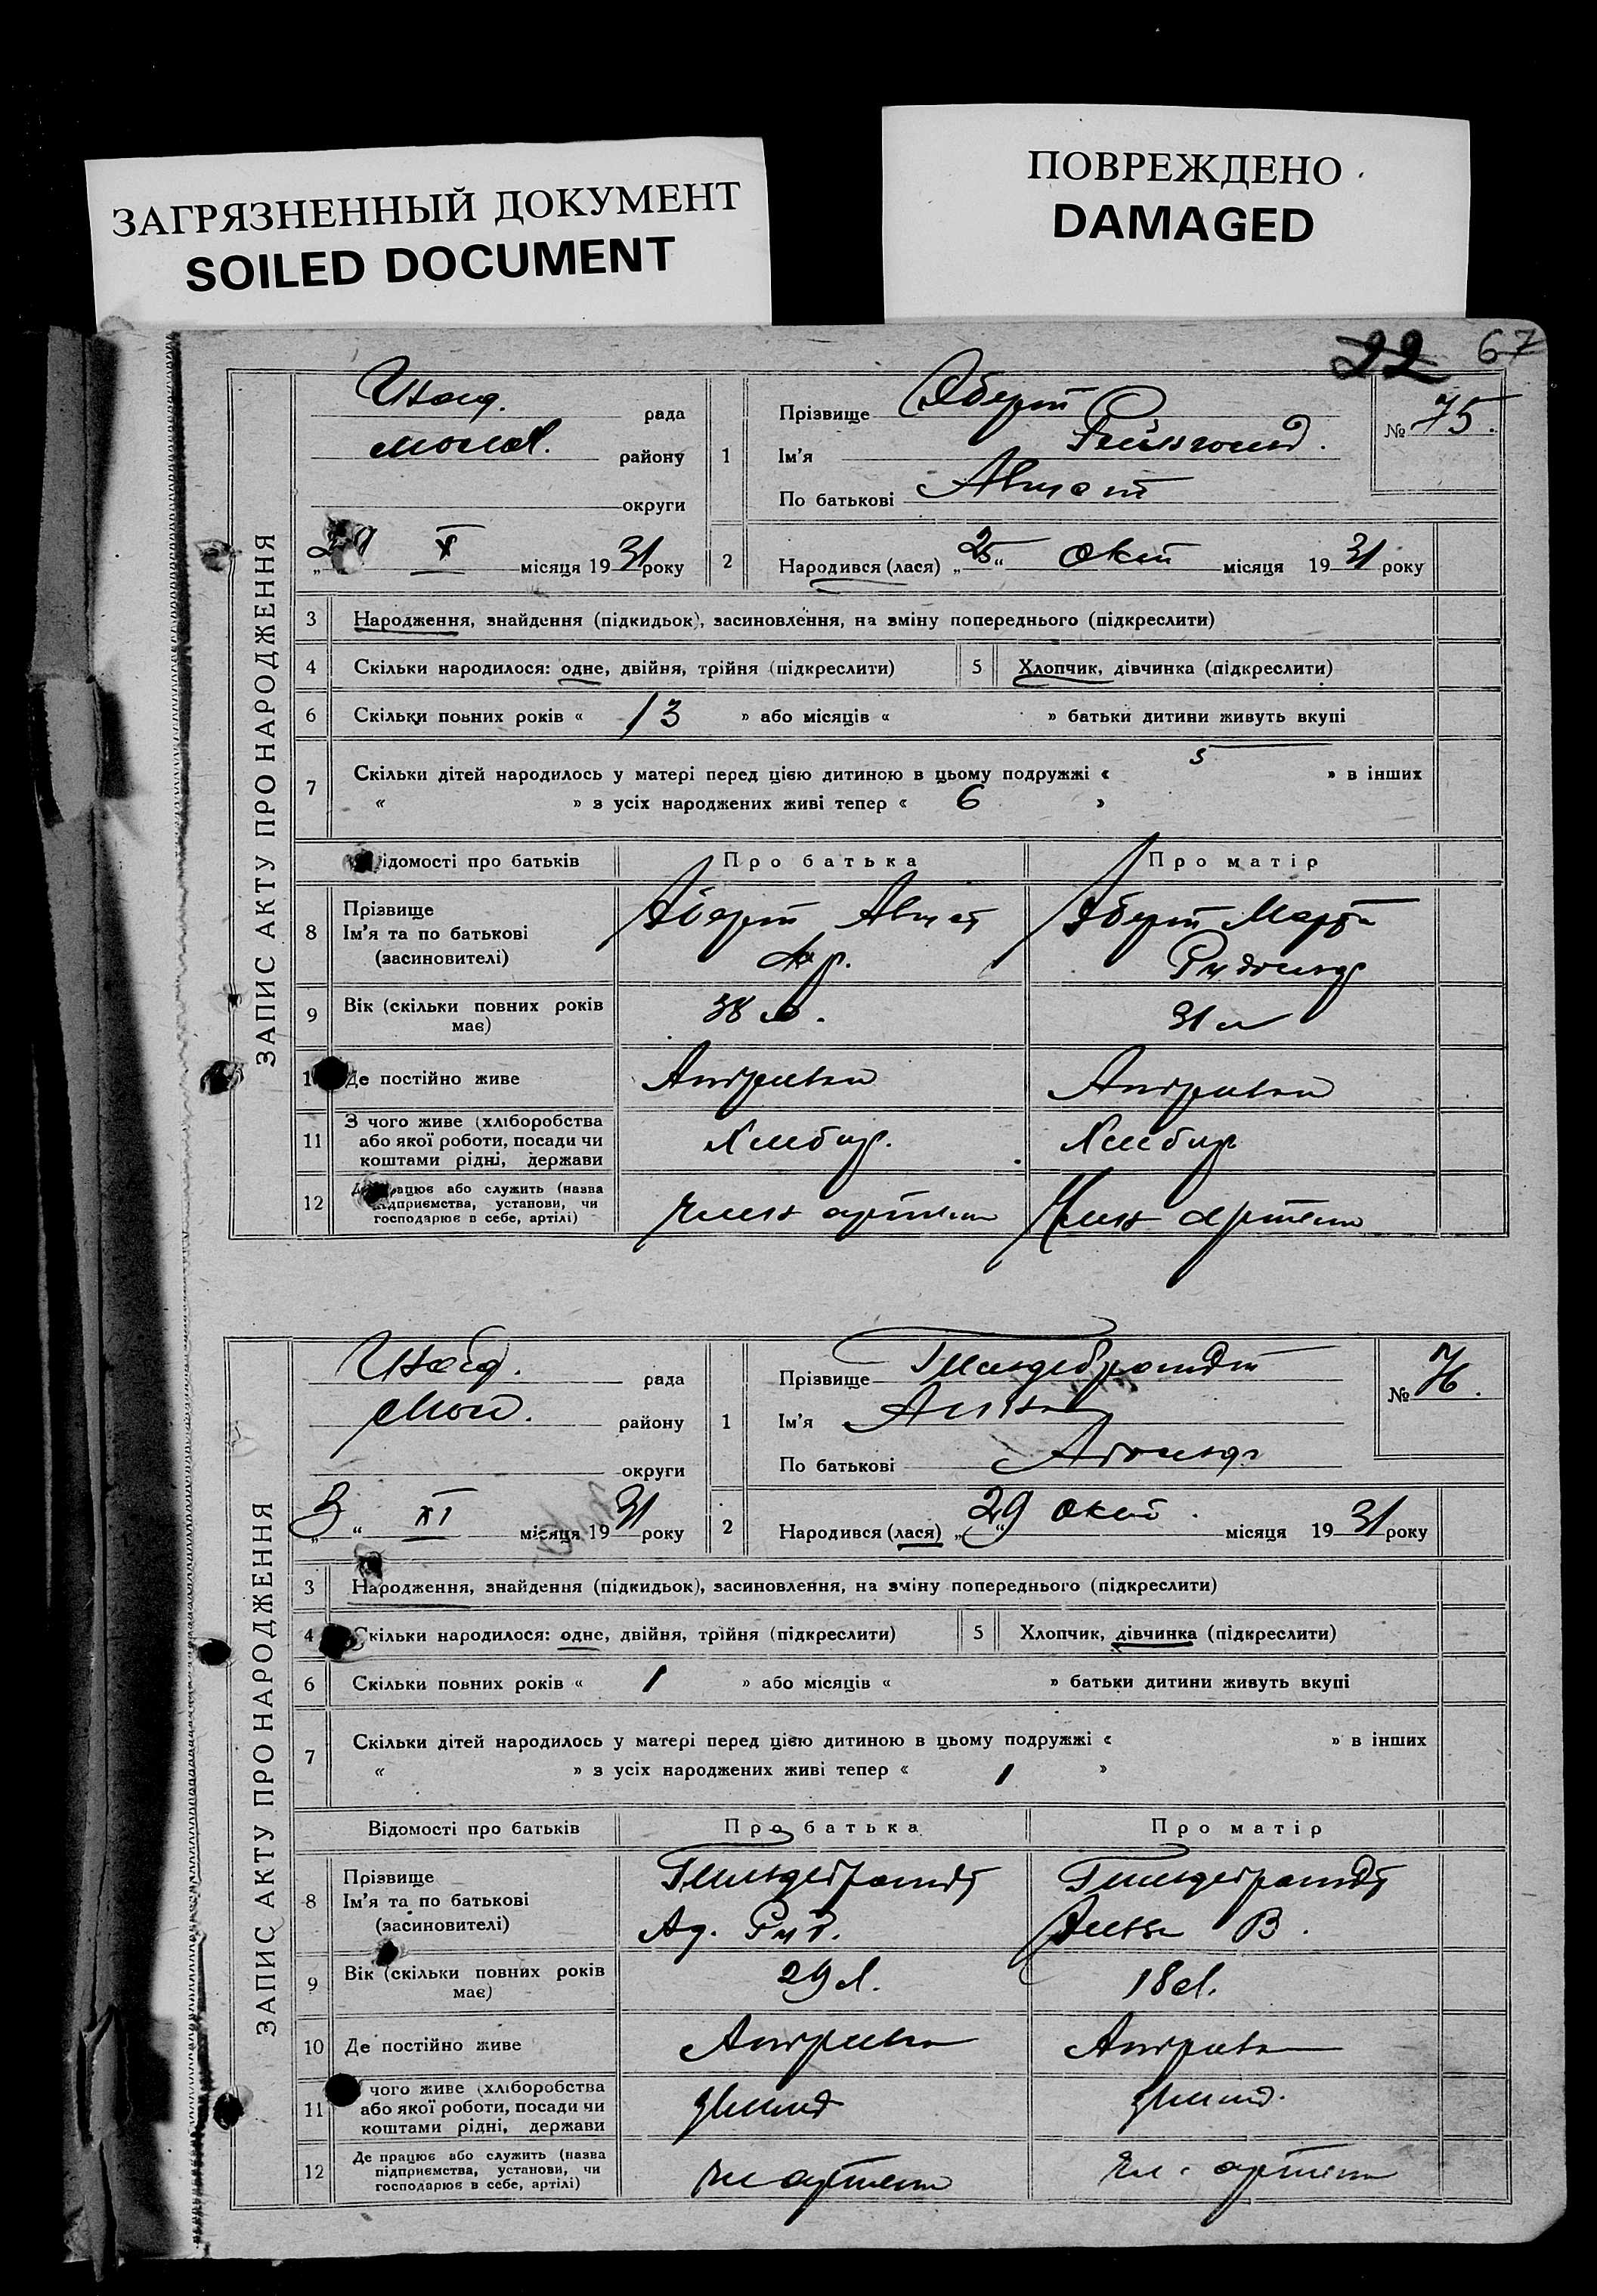 ЗАГРЯЗНЕННЫЙ ДОКУМЕНТ
SOILED DOCUMENT
ПОВРЕЖДЕНО
DAMAGED
22 67
ЗАПИС АКТУ ПРО НАРОДЖЕННЯ
рада
району
округи
X місяця 1931 року
1 Прізвище Аберт
Ім'я Рейнгольд.
По батькові Август
№ 75.
2 Народився (лася) „25“ окт місяця 1931 року
3 Народження, знайдення (підкидьок), засиновлення, на зміну попереднього (підкреслити)
4 Скільки народилося: одне, двійня, трійня (підкреслити) 5 Хлопчик, дівчинка (підкреслити)
6 Скільки повних років « 13 » або місяців « » батьки дитини живуть вкупі
7 Скільки дітей народилось у матері перед цією дитиною в цьому подружжі « 5 » в інших
« » з усіх народжених живі тепер « 6 »
ідомості про батьків Про батька Про матір
8 Прізвище
Ім'я та по батькові
(засиновителі)
Аберт Август
Аберт Марта
9 Вік (скільки повних років
має)
38 л.
31 л
Де постійно живе
11 З чого живе (хліборобства
або якої роботи, посади чи
коштами рідні, держави
Хлебор.
Хлебор
12 працює або служить (назва
підприємства, установи, чи
господарює в себе, артілі)
член артели
член артели
ЗАПИС АКТУ ПРО НАРОДЖЕННЯ
рада
району
округи
„3“ XI місяця 1931 року
1 Прізвище Гильдебрандт
Ім'я
По батькові Адольф
№ 76.
2 Народився (лася) „29“ окт. місяця 1931 року
3 Народження, знайдення (підкидьок), засиновлення, на зміну попереднього (підкреслити)
4 Скільки народилося: одне, двійня, трійня (підкреслити) 5 Хлопчик, дівчинка (підкреслити)
6 Скільки повних років « 1 » або місяців « » батьки дитини живуть вкупі
7 Скільки дітей народилось у матері перед цією дитиною в цьому подружжі « » в інших
« » з усіх народжених живі тепер « 1 »
Відомості про батьків Про батька Про матір
8 Прізвище
Ім'я та по батькові
(засиновителі)
Гильдебрандт
Ад.
Гильдебрандт
В.
9 Вік (скільки повних років
має)
29 л.
18 л.
10 Де постійно живе
11 чого живе (хліборобства
або якої роботи, посади чи
коштами рідні, держави
12 Де працює або служить (назва
підприємства, установи, чи
господарює в себе, артілі)
чл артели
чл. артели